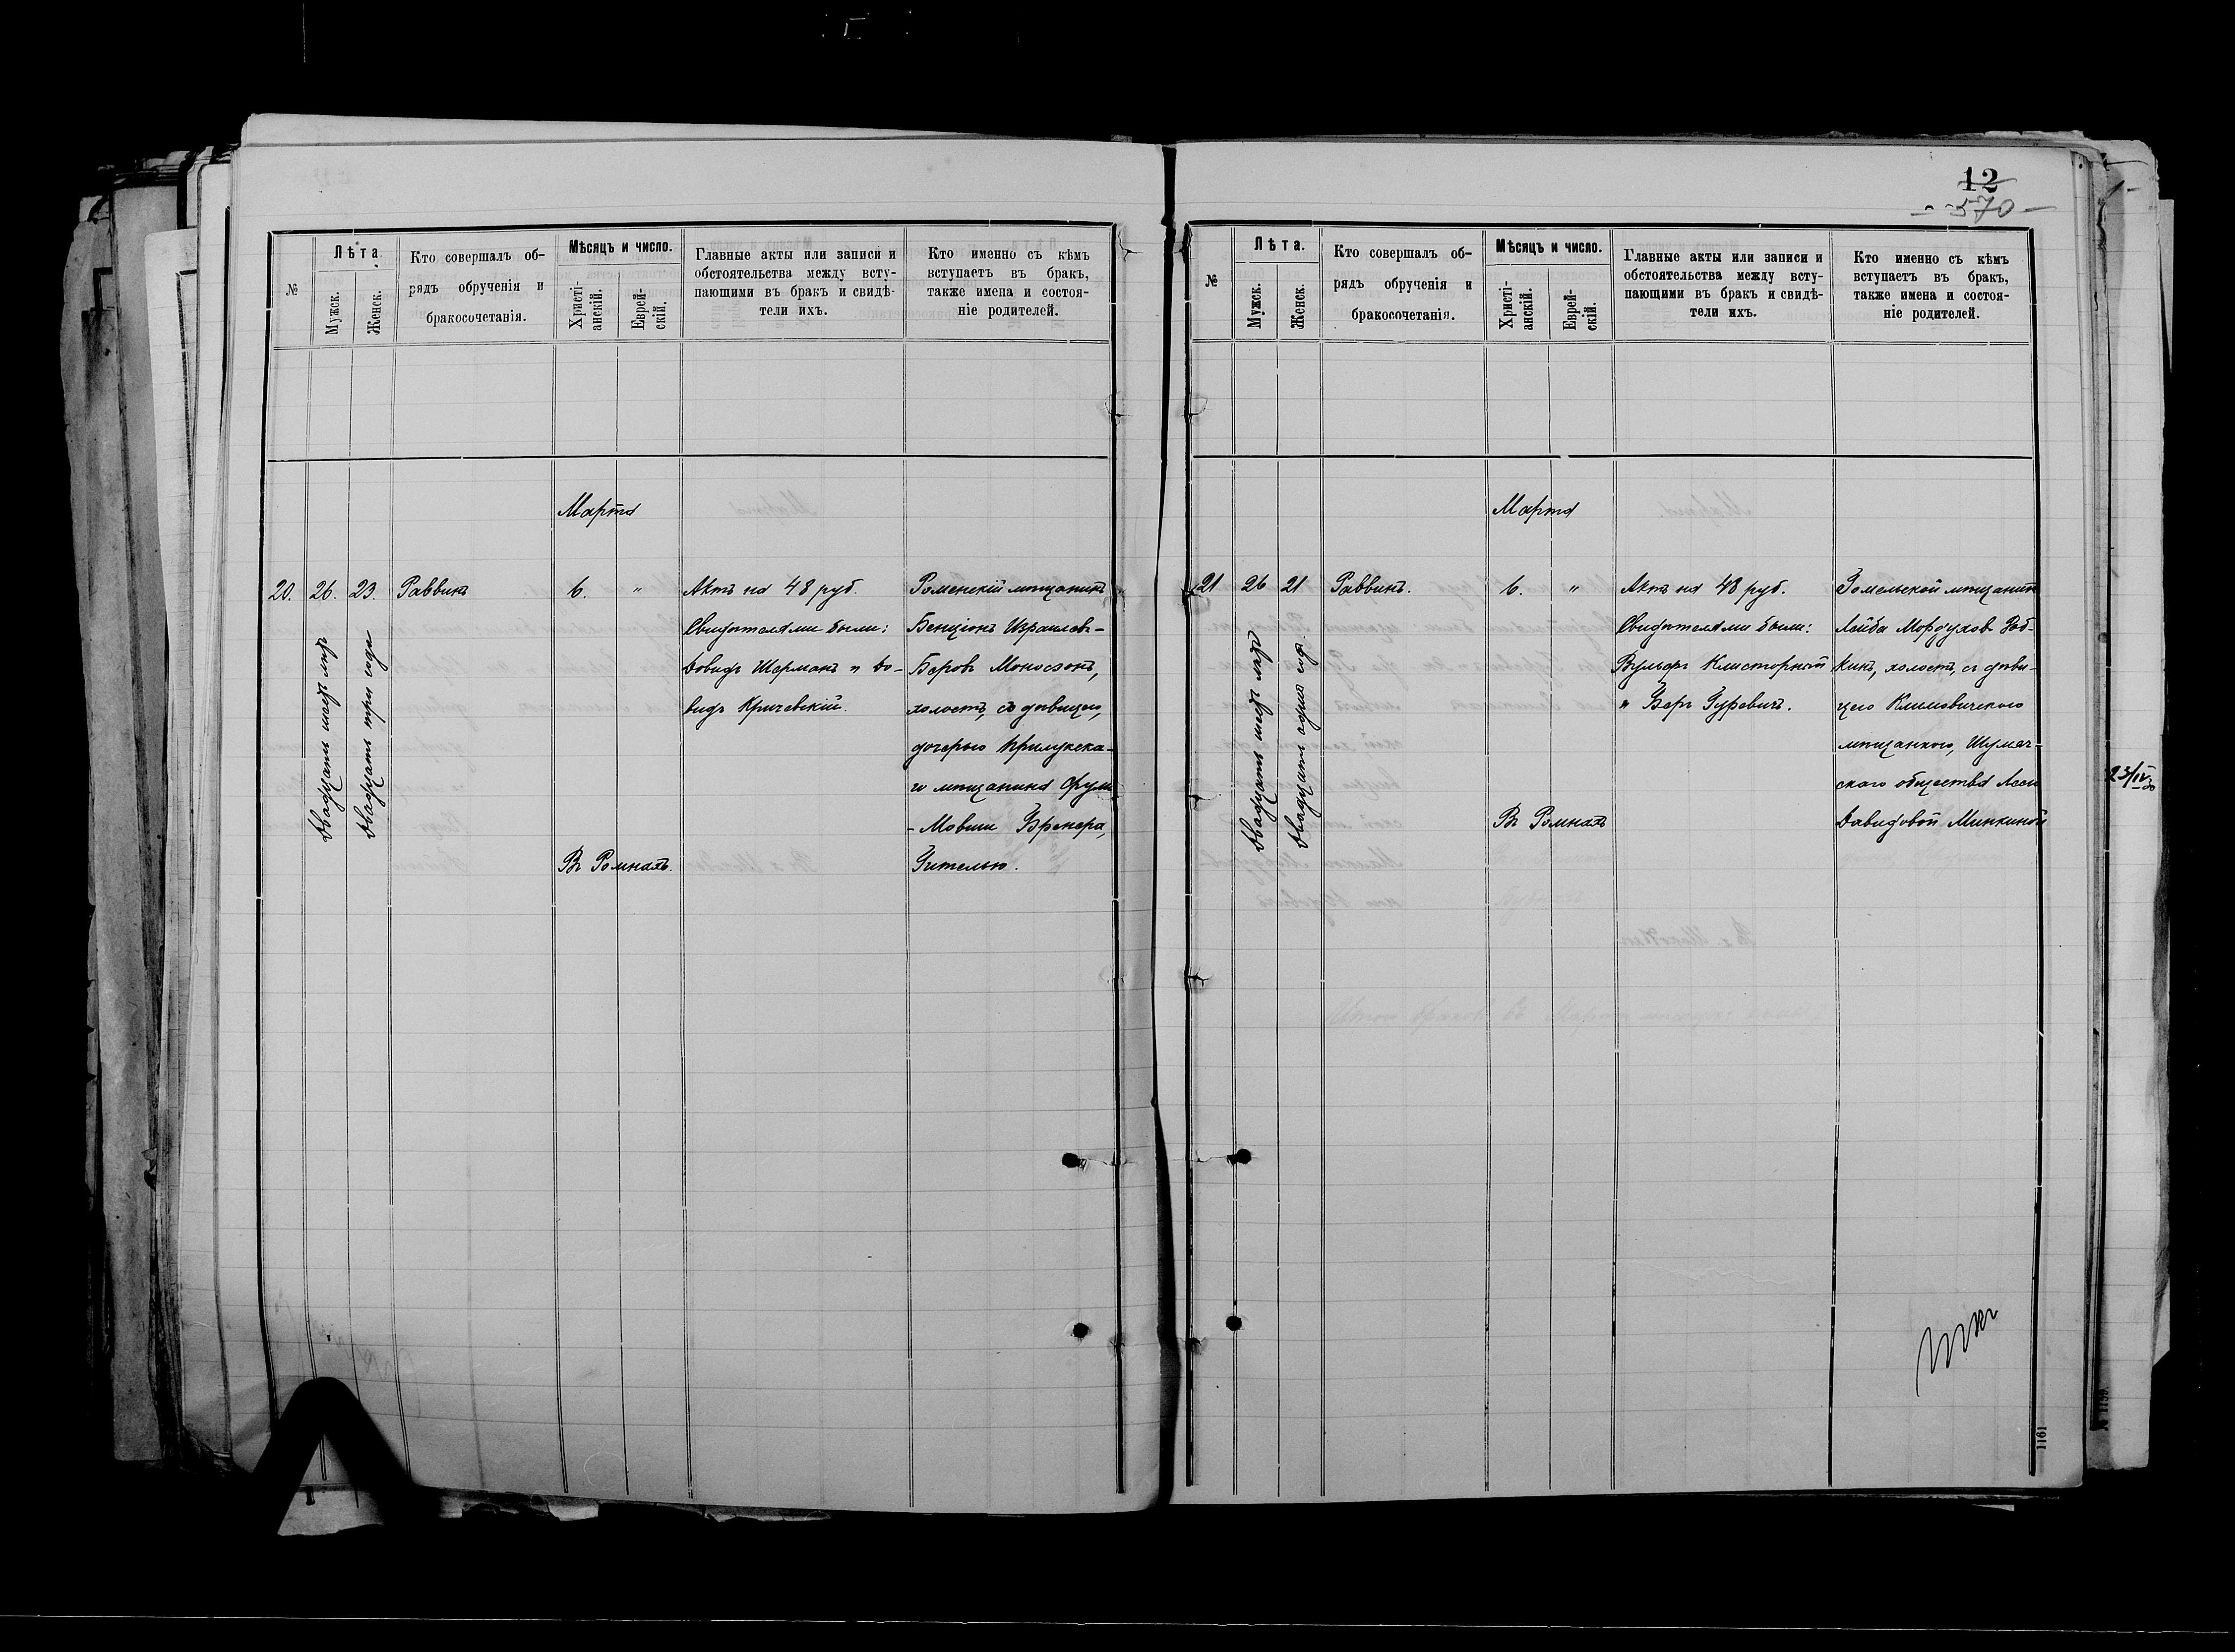 №
Лѣта
Мужск.
Женск.
Кто совершалъ об-
рядъ обрученія и
бракосочетанія.
Мѣсяцъ и число.
Христі-
анскій.
Еврей-
скій.
Главные акты или записи и
обстоятельства между всту-
пающими въ бракъ и свидѣ-
тели ихъ.
Кто именно съ кѣмъ
вступаетъ въ бракъ,
также имена и состоя-
ніе родителей.
Марта
20.
26.
23.
двадцать шесть лѣтъ
двадцать три года
Раввинъ
6.
"
Въ Ромнахъ.
Актъ на 48 руб.
Свидѣтелями были:
Довидъ Шерманъ и До-
видъ Кричевскій.
Роменскій мѣщанинъ
Бенціонъ Израилевъ-
Беровъ Моносзонъ,
холостъ, съ дѣвицею,
дочерью Прилукска-
го мѣщанина
-Мовши
12
570
№
Лѣта.
Мужск.
Женск.
Кто совершалъ об-
рядъ обрученія и
бракосочетанія.
Мѣсяцъ и число.
Христі-
анскій.
Еврей-
скій.
Главные акты или записи и
обстоятельства между всту-
пающими въ бракъ и свидѣ-
тели ихъ.
Кто именно съ кѣмъ
вступаетъ въ бракъ,
также имена и состоя-
ніе родителей.
Марта
21
26
21
двадцать шесть лѣтъ
двадцать одинъ годъ.
Раввинъ.
6.
"
Въ Ромнахъ
Актъ на 48 руб.
Свидѣтелями были:
Вульфъ Клисторный
и Беръ Гуревичъ.
Гомельской мѣщанинъ
Лейба Мордуховъ Зоб-
кинъ, холостъ, съ дѣви-
цею Климовичскою
мѣщанкою, Шумяч-
скаго общества Асси
Давидовой Минкиной
1161